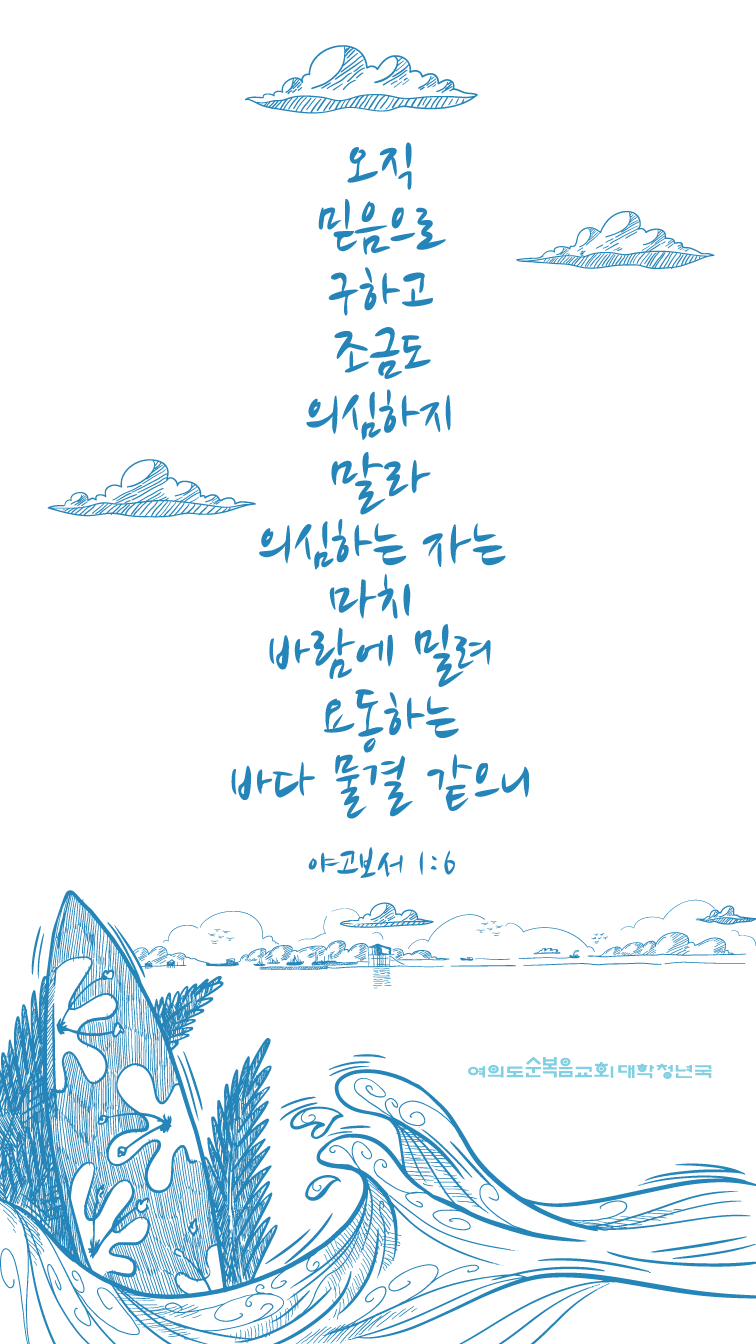 오직
믿음으로
구하고
조금도
의심하지
말라
의심하는 자는
마치
바람에 밀려
요동하는
바다 물결 같으니
야고보서 1:6
여의도순복음교회 대학청년국